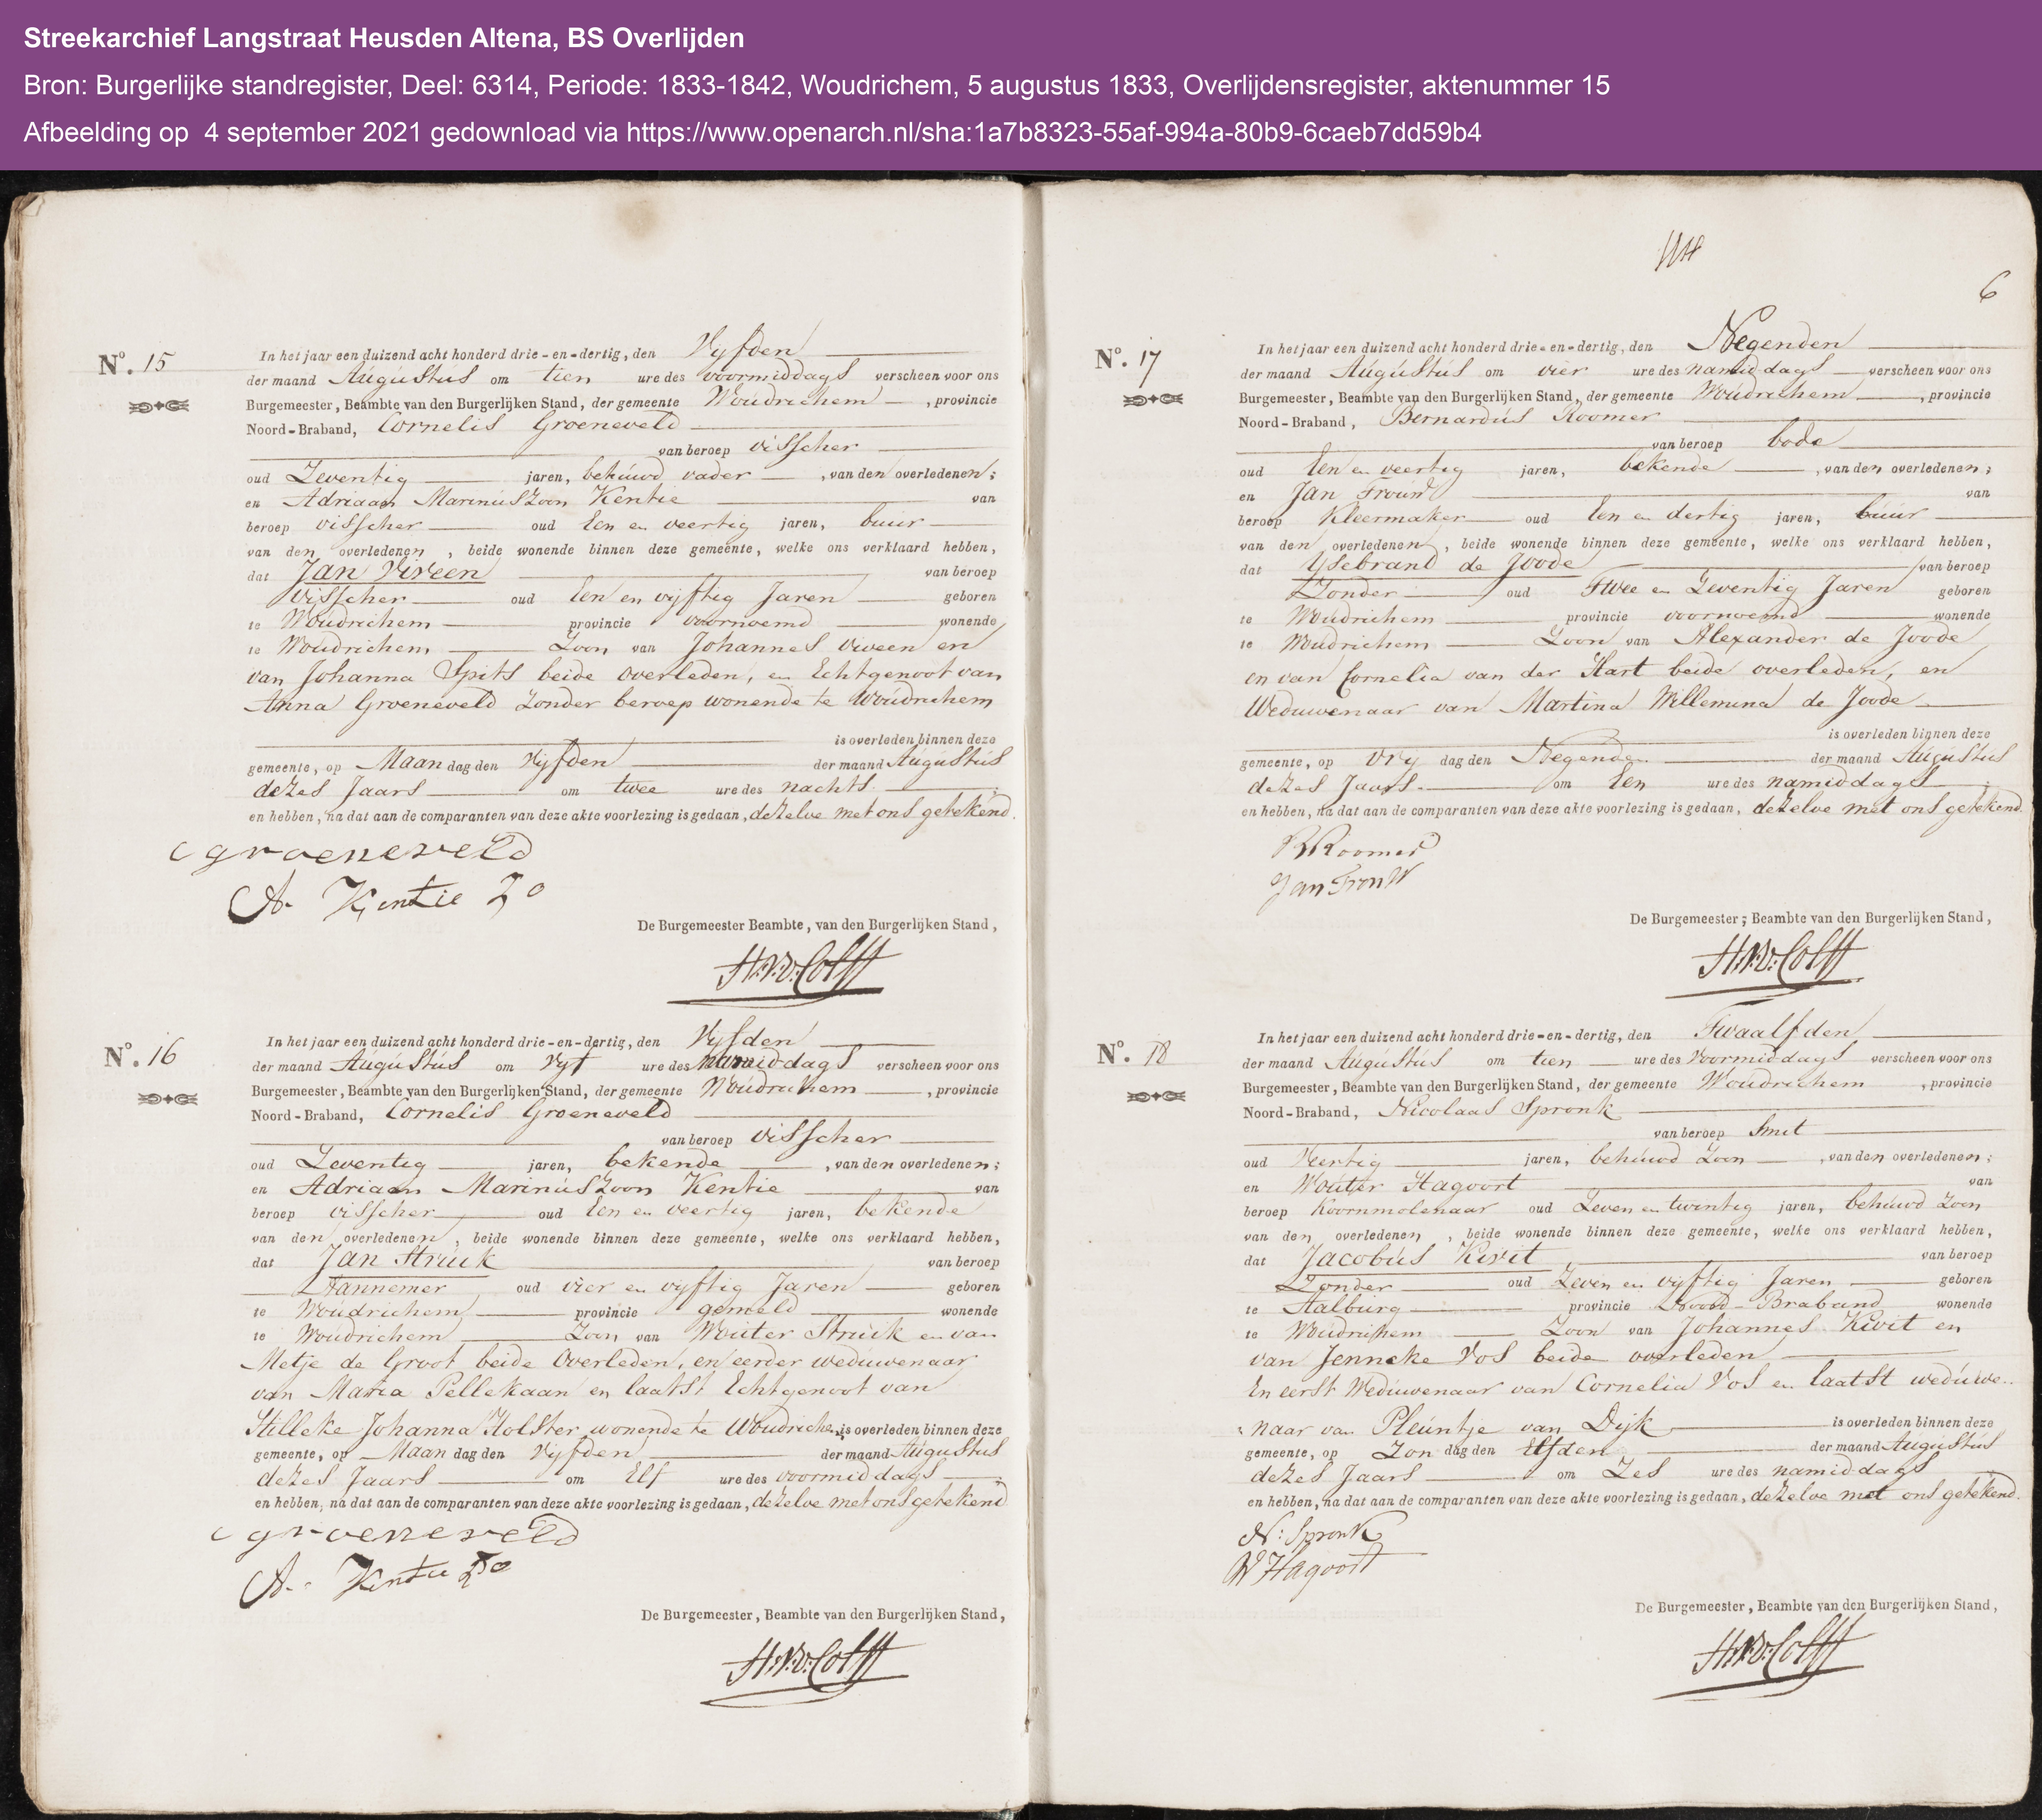 Streekarchief Langstraat Heusden Altena, BS Overlijden
Bron: Burgerlijke standregister, Deel: 6314, Periode: 1833-1842, Woudrichem, 5 augustus 1833, Overlijdensregister, aktenummer 15
Afbeelding op 4 september 2021 gedownload via https://www.openarch.nl/sha:1a7b8323-55af-994a-80b9-6caeb7dd59b4
No. 15
In het jaar een duizend acht honderd drie-en-dertig, den Vyfden
der maand Augustus om tien ure des voormiddags verscheen voor ons
Burgemeester, Beambte van den Burgerlijken Stand, der gemeente Woudrichem, provincie
Noord-Braband, Cornelis Groeneveld
van beroep visscher
oud Zeventig jaren, behuwd vader, van den overledenen;
en Adriaan Marinuszoon Kentie van
beroep visscher oud Een en veertig jaren, buur
van den overledenen, beide wonende binnen deze gemeente, welke ons verklaard hebben,
dat Jan Viveen van beroep
visscher oud Een en vyftig Jaren geboren
te Woudrichem provincie voornoemd wonende
te Woudrichem Zoon van Johannes viveen en
van Johanna Spits beide overleden, en Echtgenoot van
Anna Groeneveld Zonder beroep wonende te Woudrichem
is overleden binnen deze
gemeente, op Maan dag den Vyfden der maand Augustus
dezes Jaars om twee ure des nachts
en hebben, na dat aan de comparanten van deze akte voorlezing is gedaan, dezelve met ons getekend.
c groeneveld
A. Kentie Zo
De Burgemeester Beambte, van den Burgerlijken Stand,
No. 16
In het jaar een duizend acht honderd drie-en-dertig, den Vyfden
der maand Augustus om Vyf ure des namiddags verscheen voor ons
Burgemeester, Beambte van den Burgerlijken Stand, der gemeente Woudrichem, provincie
Noord-Braband, Cornelis Groeneveld
van beroep visscher
oud Zeventig jaren, bekende, van den overledenen;
en Adriaan Marinuszoon Kentie van
beroep visscher oud Een en veertig jaren, bekende
van den overledenen, beide wonende binnen deze gemeente, welke ons verklaard hebben,
dat Jan Struik van beroep
Aannemer oud vier en vyftig Jaren geboren
te Woudrichem provincie gemeld wonende
te Woudrichem Zoon van Wouter Struik en van
Metje de Groot beide Overleden, en eerder weduwenaar
van Maria Pellekaan en laatst Echtgenoot van
Stilleke Johanna Holster wonende te Woudrichem is overleden binnen deze
gemeente, op Maan dag den Vyfden der maand Augustus
dezes Jaars om Elf ure des voormiddags
en hebben, na dat aan de comparanten van deze akte voorlezing is gedaan, dezelve met ons getekend
c groeneveld
A. Kentie Zo
De Burgemeester, Beambte van den Burgerlijken Stand,
6
No. 17
In het jaar een duizend acht honderd drie-en-dertig, den Negenden
der maand Augustus om vier ure des namiddags verscheen voor ons
Burgemeester, Beambte van den Burgerlijken Stand, der gemeente Woudrichem, provincie
Noord-Braband, Bernardus Roomer
van beroep bode
oud Een en veertig jaren, bekende, van den overledenen;
en Jan Frouw van
beroep Kleermaker oud Een en dertig jaren, buur
van den overledenen, beide wonende binnen deze gemeente, welke ons verklaard hebben,
dat Ysebrand de Joode van beroep
Zonder oud Twee en Zeventig Jaren geboren
te Woudrichem provincie voornoemd wonende
te Woudrichem Zoon van Alexander de Joode
en van Cornelia van der Hart beide overleden, en
Weduwenaar van Martina Willemina de Joode
is overleden binnen deze
gemeente, op Vry dag den Negenden der maand Augustus
dezes Jaars om Een ure des namiddags
en hebben, na dat aan de comparanten van deze akte voorlezing is gedaan, dezelve met ons getekend.
B Roomer
Jan Frouw
De Burgemeester, Beambte van den Burgerlijken Stand,
No. 18
In het jaar een duizend acht honderd drie-en-dertig, den Twaalfden
der maand Augustus om tien ure des Voormiddags verscheen voor ons
Burgemeester, Beambte van den Burgerlijken Stand, der gemeente Woudrichem, provincie
Noord-Braband, Nicolaas Spronk
van beroep Smit
oud Veertig jaren, behuwd Zoon, van den overledenen;
en Wouter Hagoort van
beroep Koornmolenaar oud Zeven en twintig jaren, behuwd Zoon
van den overledenen, beide wonende binnen deze gemeente, welke ons verklaard hebben,
dat Jacobus Kivit van beroep
Zonder oud Zeven en vyftig Jaren geboren
te Aalburg provincie Noord-Braband wonende
te Woudrichem Zoon van Johannes Kivit en
van Jenneke Vos beide overleden
En eerst Weduwenaar van Cornelia Vos en laatst weduwe..
naar van Pleuntje van Dijk is overleden binnen deze
gemeente, op Zon dag den Elfden der maand Augustus
dezes Jaars om Zes ure des namiddags
en hebben, na dat aan de comparanten van deze akte voorlezing is gedaan, dezelve met ons getekend.
N: Spronk
W Hagoort
De Burgemeester, Beambte van den Burgerlijken Stand,